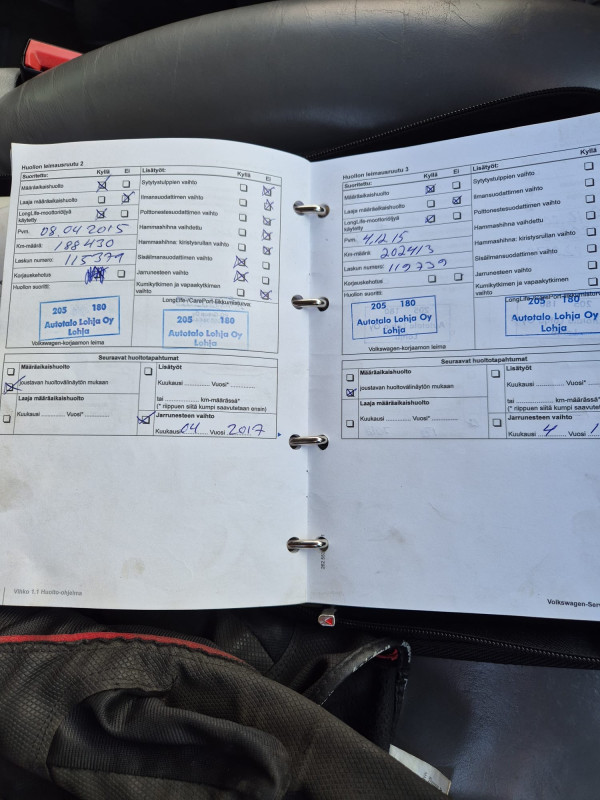 Huollon leimausruutu 2
Suoritettu: Kyllä Ei
Määräaikaishuolto
Laaja määräaikaishuolto
LongLife-moottoriöljyä käytetty
Pvm. 08.04.2015
Km-määrä: 188 430
Laskun numero: 115379
Korjauskehotus
Huollon suoritti:
205 180
Autotalo Lohja Oy
Lohja
Volkswagen-korjaamon leima
Lisätyöt: Kyllä Ei
Sytytystulppien vaihto
Ilmansuodattimen vaihto
Polttonestesuodattimen vaihto
Hammashihna vaihdettu
Hammashihna: kiristysrullan vaihto
Sisäilmansuodattimen vaihto
Jarrunesteen vaihto
Kumikytkimen ja vapaakytkimen vaihto
LongLife-/CarePort-liikkumisturva
205 180
Autotalo Lohja Oy
Lohja
Seuraavat huoltotapahtumat
Määräaikaishuolto
joustavan huoltovälinäytön mukaan
Laaja määräaikaishuolto
Kuukausi ........... Vuosi* ...........
Lisätyöt
Kuukausi ........... Vuosi* ...........
tai ........... km-määrässä*
(* riippuen siitä kumpi saavutetaan ensin)
Jarrunesteen vaihto
Kuukausi 04 Vuosi 2017
Vihko 1.1 Huolto-ohjelma
Huollon leimausruutu 3
Suoritettu: Kyllä Ei
Määräaikaishuolto
Laaja määräaikaishuolto
LongLife-moottoriöljyä käytetty
Pvm. 4.12.15
Km-määrä: 202413
Laskun numero: 119739
Korjauskehotus
Huollon suoritti:
205 180
Autotalo Lohja Oy
Lohja
Volkswagen-korjaamon leima
Lisätyöt: Kyllä
Sytytystulppien vaihto
Ilmansuodattimen vaihto
Polttonestesuodattimen vaihto
Hammashihna vaihdettu
Hammashihna: kiristysrullan vaihto
Sisäilmansuodattimen vaihto
Jarrunesteen vaihto
Kumikytkimen ja vapaakytkimen vaihto
205 180
Autotalo Lohja Oy
Lohja
Seuraavat huoltotapahtumat
Määräaikaishuolto
joustavan huoltovälinäytön mukaan
Laaja määräaikaishuolto
Kuukausi ........... Vuosi* ...........
Lisätyöt
Kuukausi ........... Vuosi* ...........
tai ........... km-määrässä*
(* riippuen siitä kumpi saavutetaan ensin)
Jarrunesteen vaihto
Kuukausi 4 Vuosi 1
Volkswagen-Ser